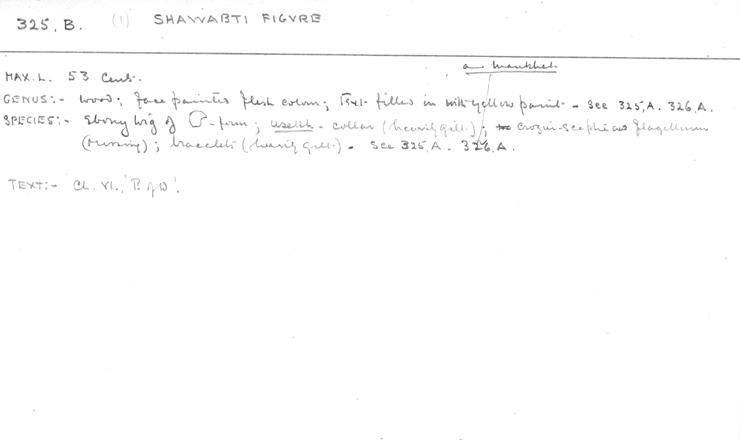 325, B. (1) SHAWABTI FIGVRE
a mankhet
MAX. L. 53 Cents.
GENUS:- wood; face painted flesh colour; Text filled in with yellow paint - see 325, A. 326, A.
SPECIES:- Ebony wig of form; usekh - collar (heavily gilt.); crozier-sceptre and flagellum
(missing); bracelets (heavily gilt.) - see 325, A. 326, A.
TEXT:- CL. VI., 'B of D'.